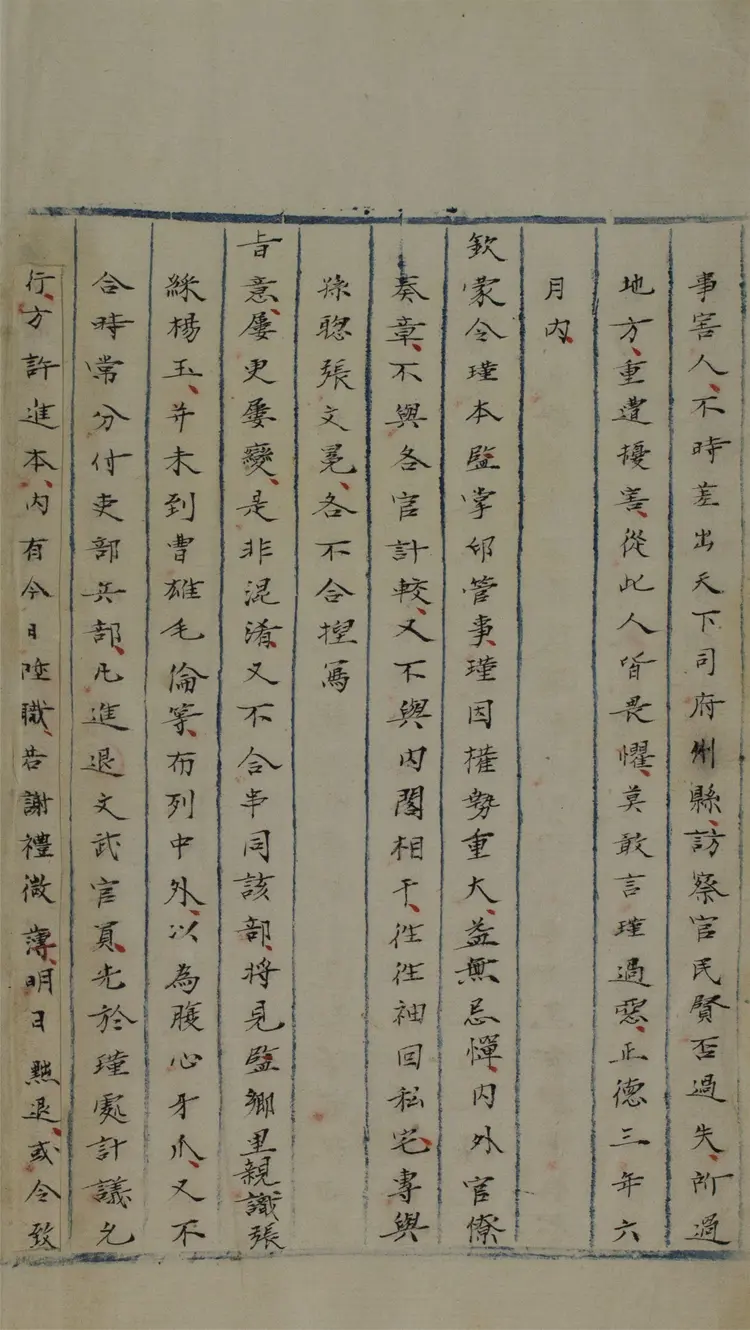 事害人、不時差出天下司府州縣、訪察官民賢否過失、所過
地方、重遭擾害、從此人皆畏懼、莫敢言瑾過惡、正德三年六
月內、
欽蒙令瑾本監掌印管事、瑾因權勢重大、益無忌憚、內外官僚
奏章、不與各官計較、又不與內閣相干、徃徃袖回私宅、專與
孫聦張文冕、各不合揑寫
旨意、屢更屢變、是非混淆、又不合串同該部、將見監鄉里親識張
綵楊玉、并未到曹雄毛倫等、布列中外、以為腹心牙爪、又不
合時常分付吏部兵部、凡進退文武官員、先於瑾處計議允
行、方許進本、內有今日陞職、若謝禮微薄、明日㸃退、或令致